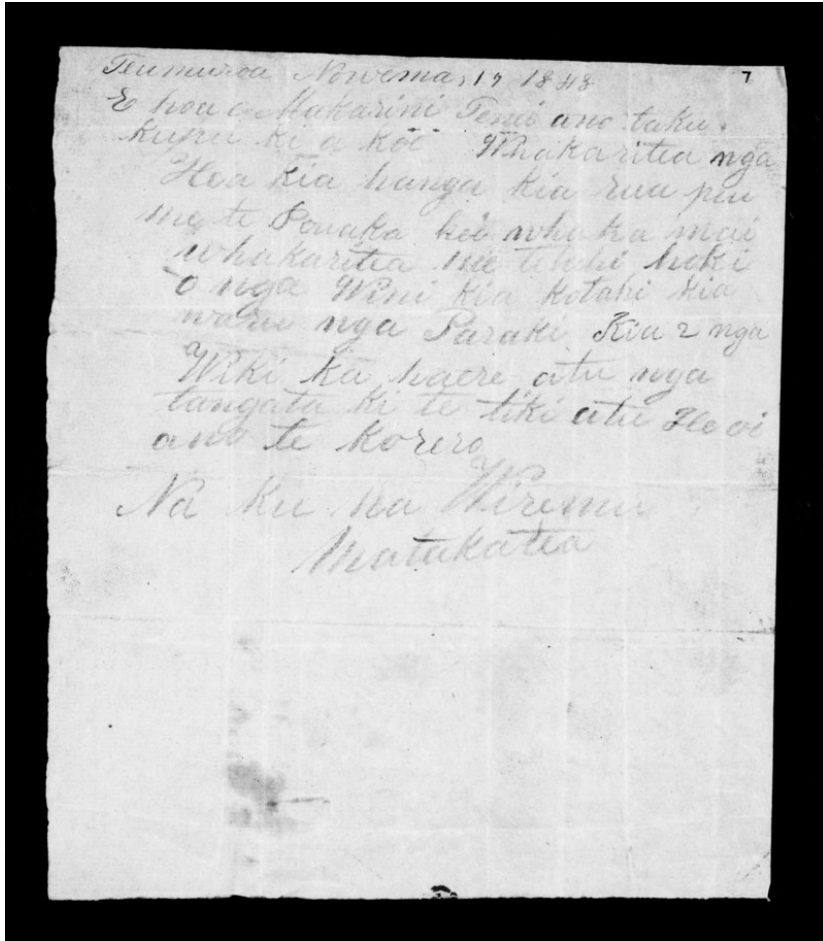 Teumuroa Nowema, 17 1848 7
E hoa e Makarini Tenei ano taku
kupu ki a koe Whakaritea nga
Hea kia hanga kia rua pea
me te Pouaka kei whaka mai
whakaritea me hoki
o nga Wini kia kotahi kia
waru nga Paraki Kia 2 nga
Wiki ka haere atu nga
tangata ki te tiki atu Heoi
ano te korero
Na ku na Wiremu
Matakatea